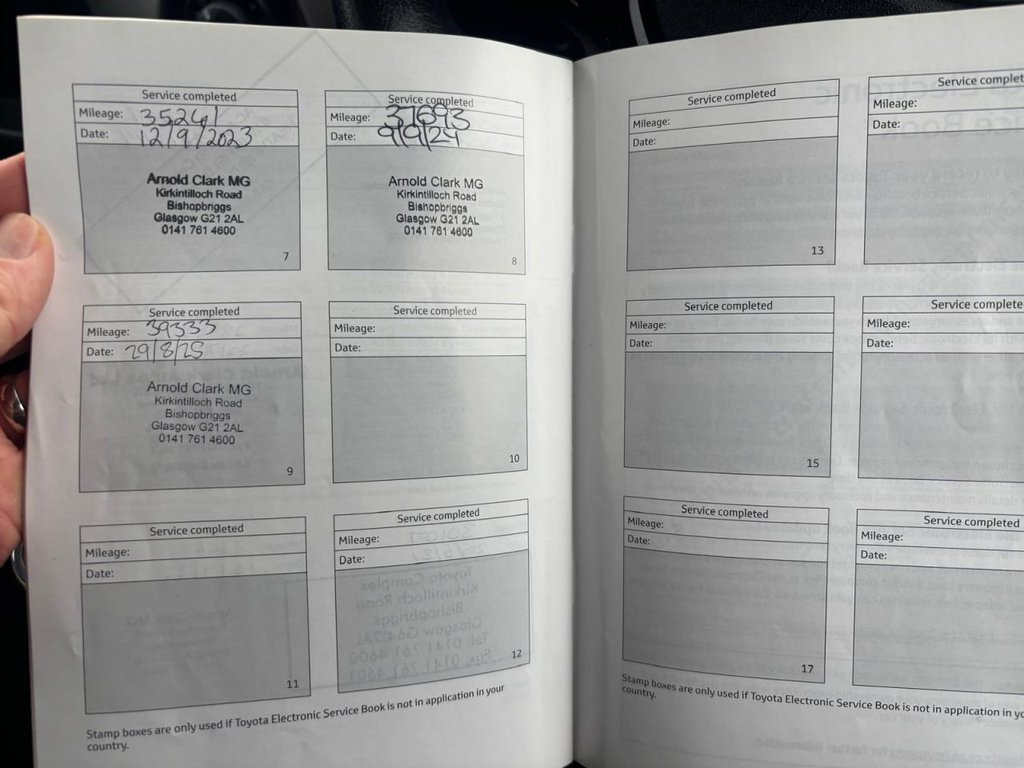 Service completed
Mileage: 35241
Date: 12/9/2023
Arnold Clark MG
Kirkintilloch Road
Bishopbriggs
Glasgow G21 2AL
0141 761 4600
7
Service completed
Mileage: 37693
Date: 9/9/24
Arnold Clark MG
Kirkintilloch Road
Bishopbriggs
Glasgow G21 2AL
0141 761 4600
8
Service completed
Mileage: 39333
Date: 29/8/25
Arnold Clark MG
Kirkintilloch Road
Bishopbriggs
Glasgow G21 2AL
0141 761 4600
9
Service completed
Mileage:
Date:
10
Service completed
Mileage:
Date:
11
Service completed
Mileage:
Date:
12
Stamp boxes are only used if Toyota Electronic Service Book is not in application in your
country.
Service completed
Mileage:
Date:
13
Service complet
Mileage:
Date:
Service completed
Mileage:
Date:
15
Service complete
Mileage:
Date:
Service completed
Mileage:
Date:
17
Service completed
Mileage:
Date:
Stamp boxes are only used if Toyota Electronic Service Book is not in application in yo
country.